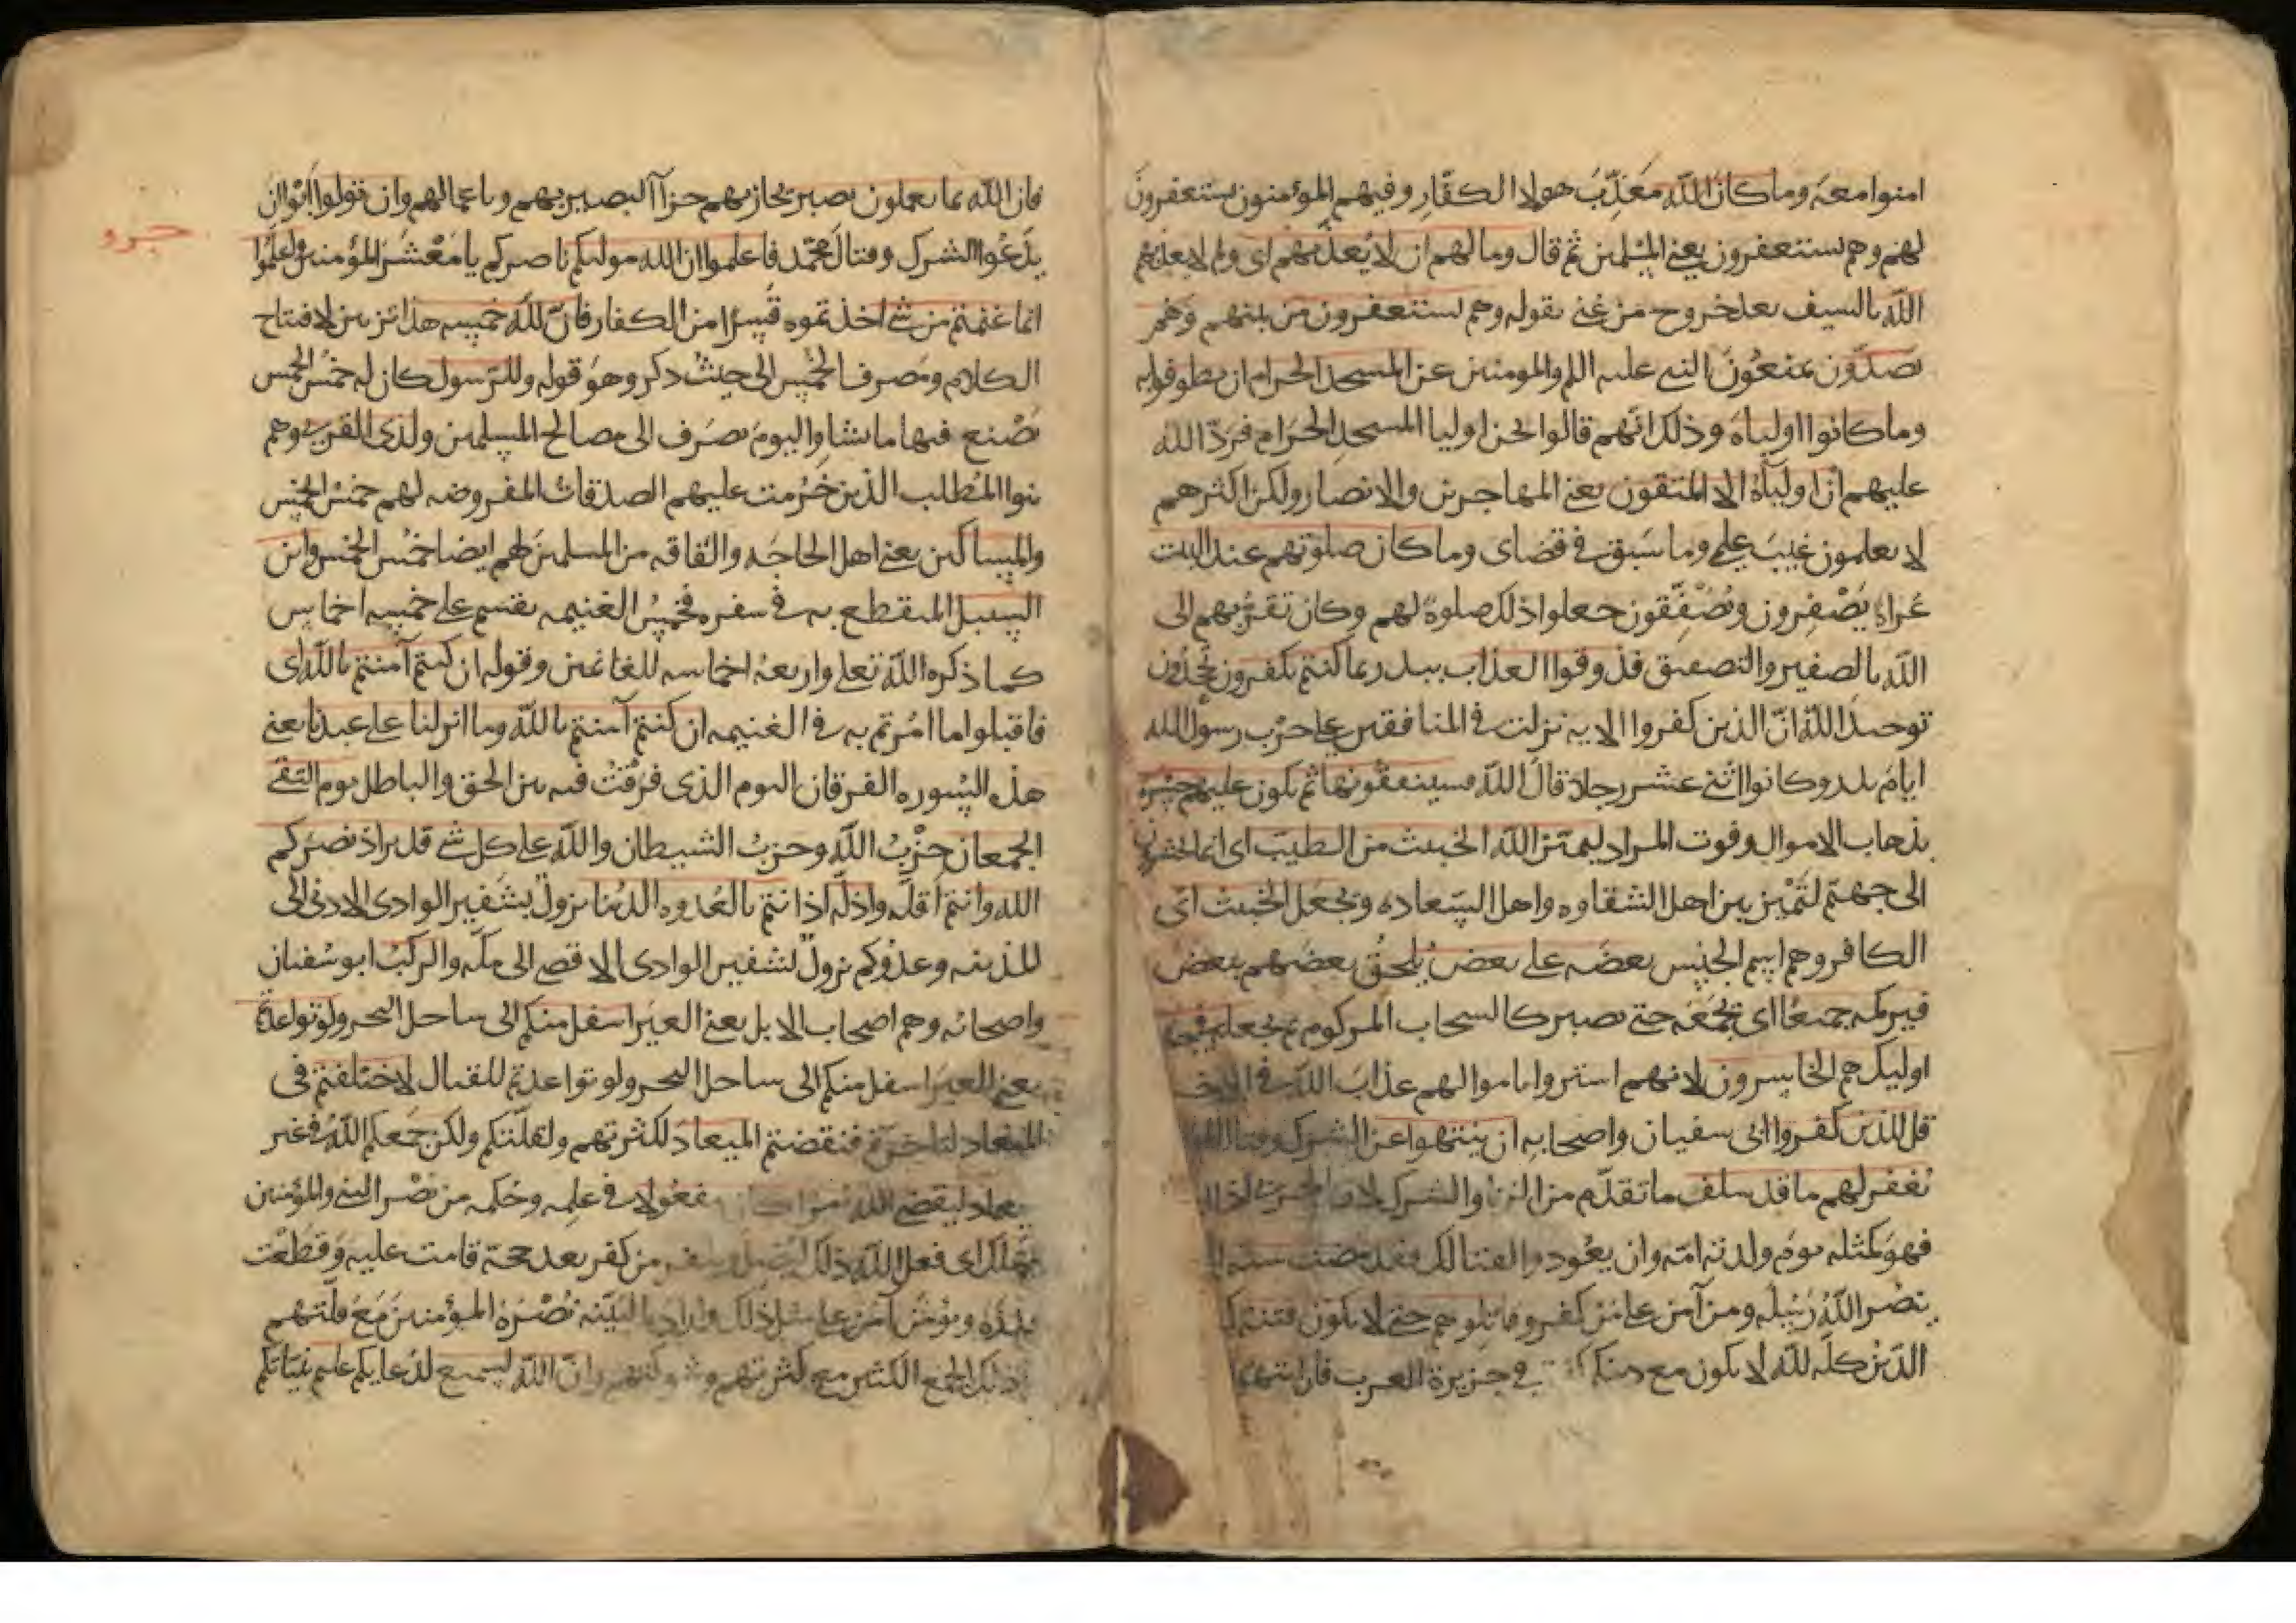 امنوا معه وما كان الله معذب هولا الكفار وفيهم المؤمنون يستغفرون
لهم وهم يستغفرون يعني المسلمين ثم قال وما لهم ان لا يعذبهم اى ولم لا يعذبهم
الله بالسيف بعد خروج من عني بقوله وهم يستغفرون من بينهم وهم
يصدون يمنعون النبي عليه السلم والمومنين عن المسجد الحرام ان يطوفوا به
وما كانوا اولياه وذلك انهم قالوا نحن اوليا المسجد الحرام فرد الله
عليهم ان اولياه الا المتقون يعني المهاجرين والانصار ولكن اكثرهم
لا يعلمون غيب علمي وما سبق في قضاى وما كان صلوتهم عند البيت
عراة يصفرون ويصفقون جعلوا ذلك صلوة لهم وكان تقربهم الى
الله بالصفير والتصفيق فذوقوا العذاب ببدر بما كنتم تكفرون تجحدون
توحيد الله ان الذين كفروا الايه نزلت في المنافقين على حرب رسول الله
ايام بدر وكانوا اثنى عشر رجلا قال الله فسينفقونها ثم تكون عليهم حسرة
بذهاب الاموال وفوت المراد ليميز الله الخبيث من الطيب اى انما
الى جهنم لتميز بين اهل الشقاوه واهل السعاده ويجعل الخبيث اى
الكافر وهم اسم الجنس بعضه على بعض يلحق بعضهم ببعض
فيركمه جميعا اى يجمعه حتى يصير كالسحاب المركوم ثم يجعله في جهنم
اوليك هم الخاسرون لانهم اشتروا باموالهم عذاب الله في الاخرة
قل للذين كفروا ابى سفيان واصحابه ان ينتهوا عن الشرك وقتال
نغفر لهم ما قد سلف ما تقدم من الزنا والشرك لان
فهو كمثله يوم ولدته امه وان يعودوا للقتال فقد مضت سنة
بنصر الله رسله ومن آمن على من كفر وقاتلوهم حتى لا تكون فتنة
الدين كله لله لا يكون مع دينكم في جزيرة العرب فان انتهوا
فان الله بما يعملون بصير يجازيهم جزآ البصير بهم وباعمالهم وان تولوا ابوا ان
جزو
يدعوا الشرك وقتال محمد فاعلموا ان الله موليكم ناصركم يا معشر المؤمنين واعلموا
انما غنمتم من شى اخذتموه قسرا من الكفار فان لله خمسه هذا تزيين لافتتاح
الكلام ومصرف الخمس الى حيث ذكر وهو قوله وللرسول كان له خمس الخمس
يصنع فيها ما يشا واليوم يصرف الى مصالح المسلمين ولذى القربى وهم
بنوا المطلب الذين حرمت عليهم الصدقات المفروضه لهم خمس الخمس
والمساكين يعني اهل الحاجه والفاقه من المسلمين لهم ايضا خمس الخمس وابن
السبيل المنقطع به في سفره فخمس الغنيمه يقسم على خمسه اخماس
كما ذكره الله تعلى واربعه اخماسه للغانمين وقوله ان كنتم آمنتم بالله اى
فاقبلوا ما امرتم به في الغنيمه ان كنتم آمنتم بالله وما انزلنا على عبدنا يعني
هذه السوره الفرقان اليوم الذى فرقت فيه بين الحق والباطل يوم التقى
الجمعان حزب الله وحزب الشيطان والله على كل شى قدير اذ نصركم
الله وانتم اقله واذله اذ انتم بالعدوه الدنيا نزول بشفير الوادى الادنى الى
المدينه وعدوكم نزول بشفير الوادى الاقصى الى مكه والركب ابو سفيان
واصحابه وهم اصحاب الابل يعني العير اسفل منكم الى ساحل البحر ولو تواعدتم
يعني العير اسفل منكم الى ساحل البحر ولو تواعدتم للقتال لاختلفتم في
الميعاد لتاخرتم فنقضتم الميعاد لكثرتهم ولقلتكم ولكن جمعكم الله في غير
ميعاد ليقضي الله امرا كان مفعولا في علمه وحكمه من نصر النبى والمؤمنين
ليهلك اى فعل الله ذلك ليضل من كفر بعد حجة قامت عليه وقطعت
عذره ويؤمن من آمن على مثل ذلك واراد بالبينه نصرة المؤمنين مع قلتهم
ذلك الجمع الكثير مع كثرتهم وشوكتهم وان الله لسميع لدعايكم عليم بنياتكم